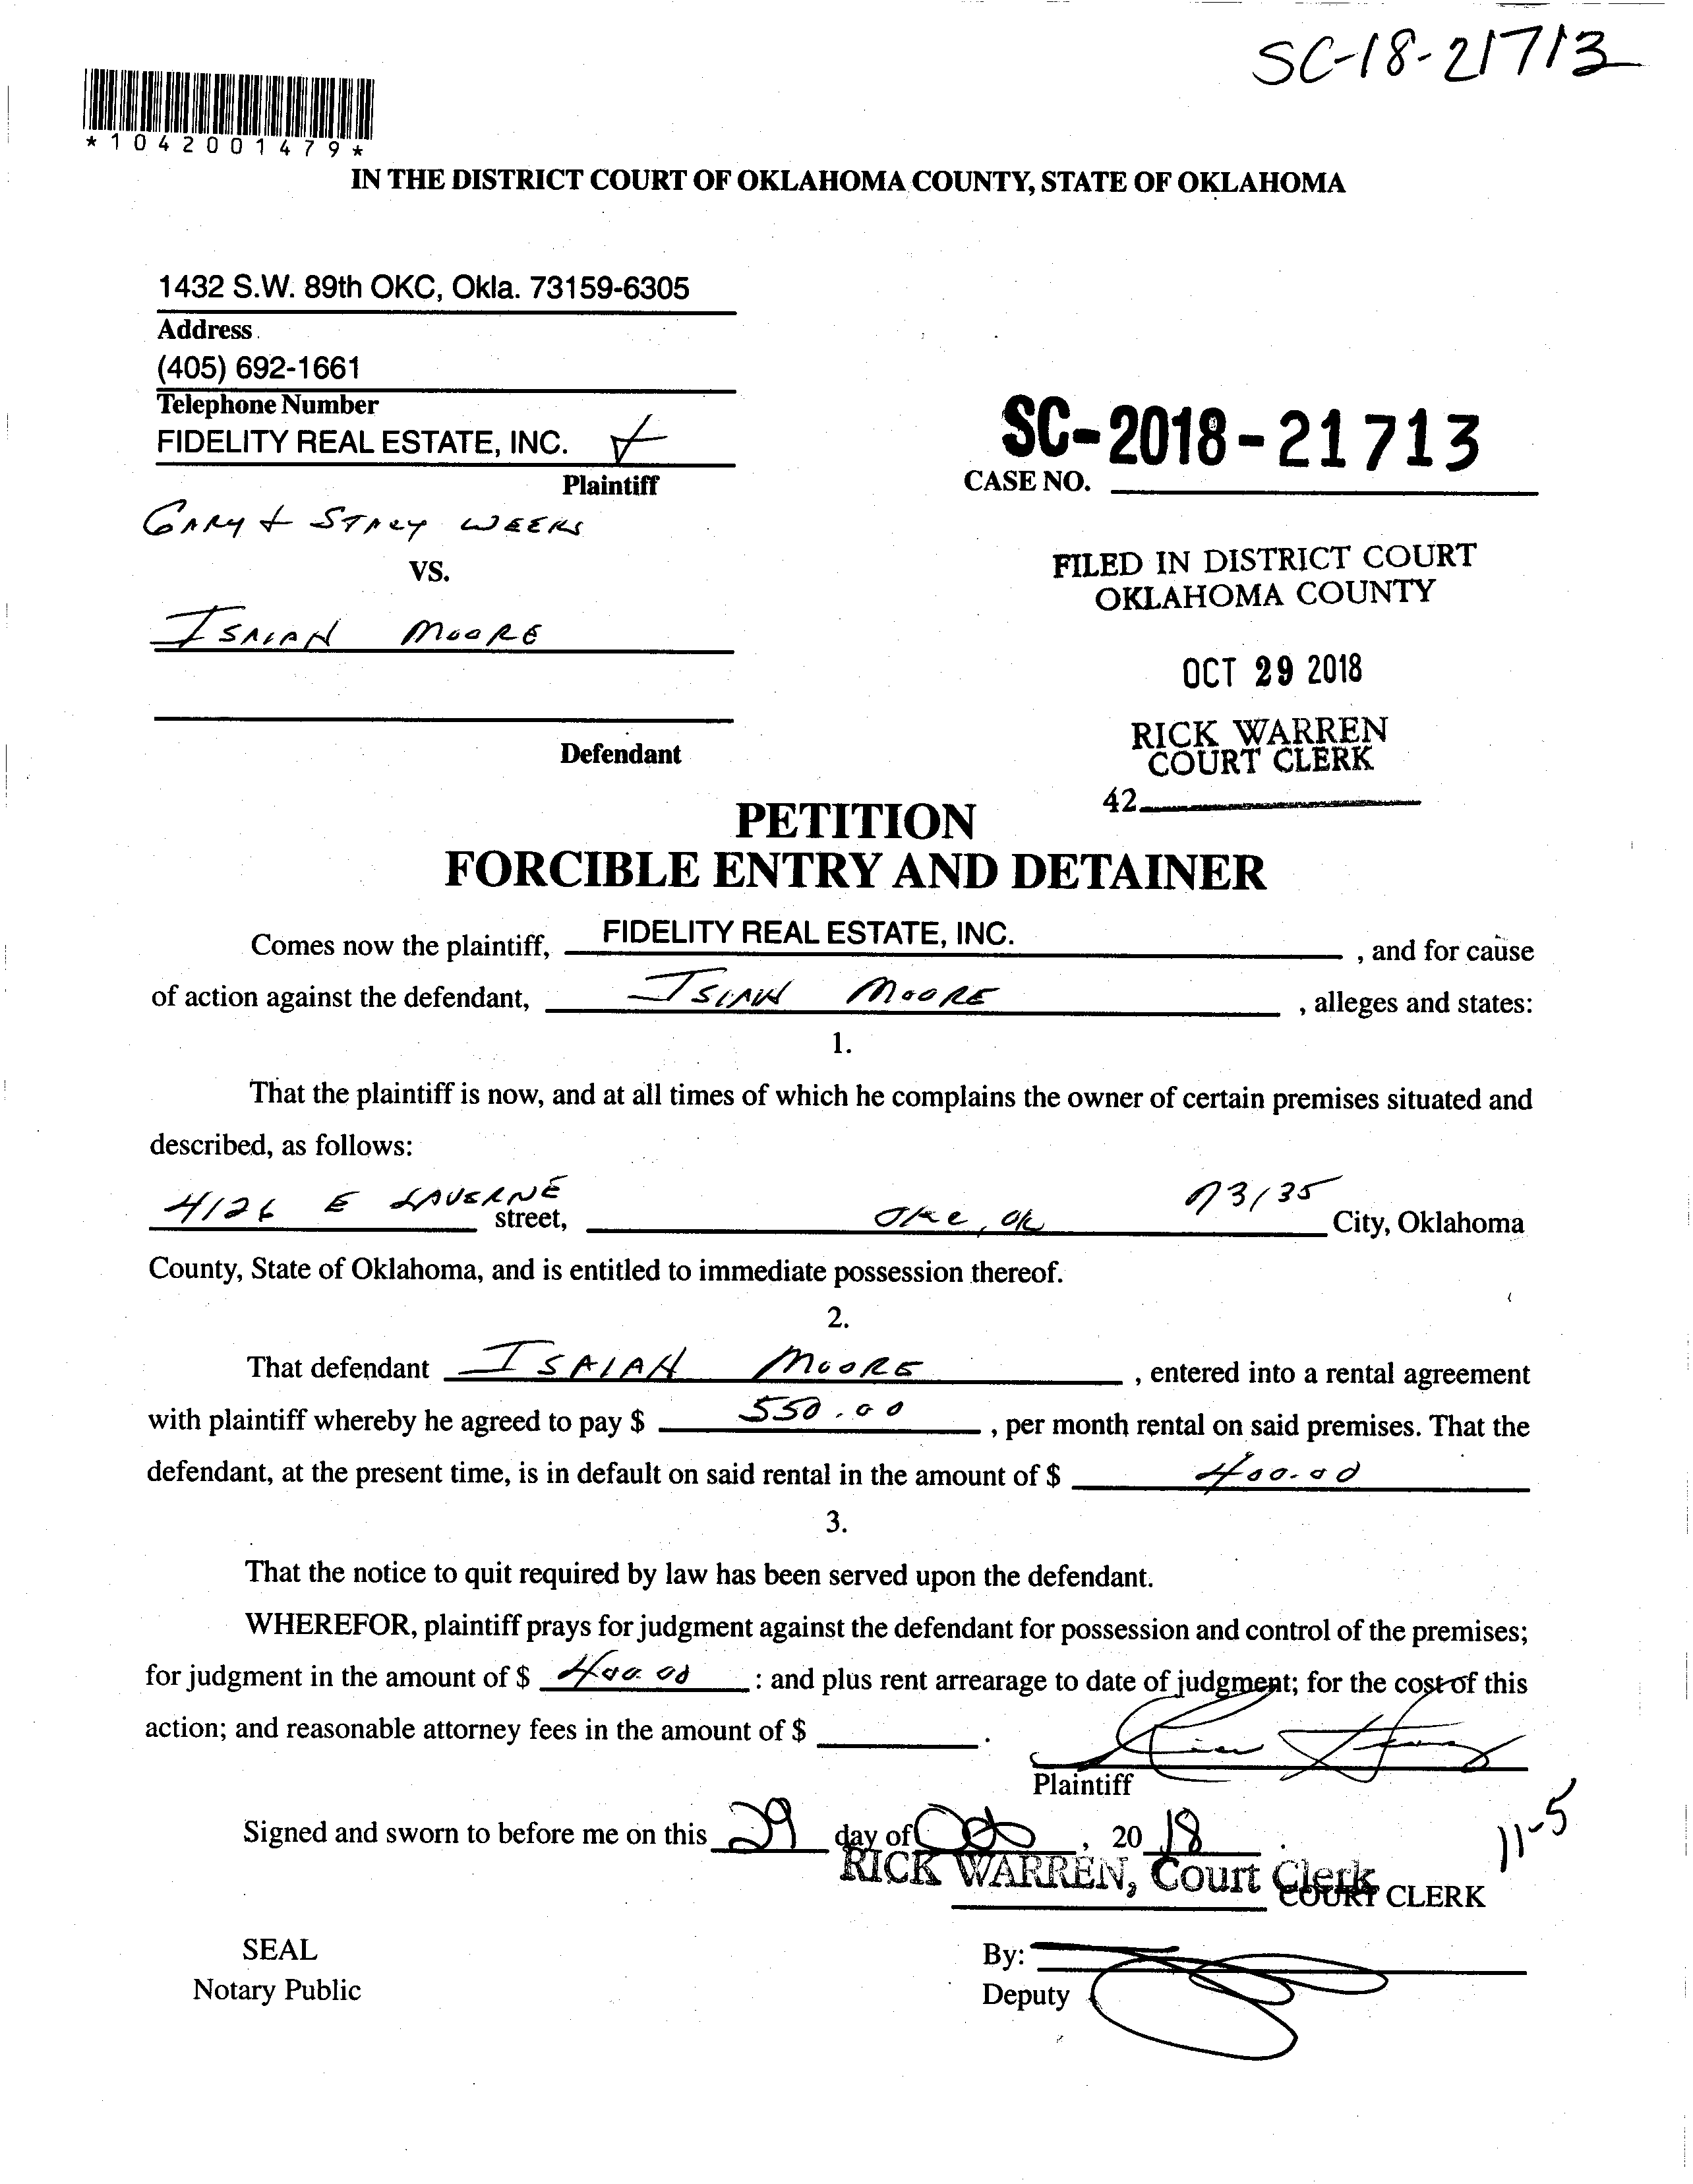 SC-18-21713
*1042001479*
IN THE DISTRICT COURT OF OKLAHOMA COUNTY, STATE OF OKLAHOMA
1432 S.W. 89th OKC, Okla. 73159-6305
Address
(405) 692-1661
Telephone Number
FIDELITY REAL ESTATE, INC. +
Plaintiff
GARY + STACY WEEKS
VS.
ISAIAH MOORE
Defendant
SC-2018-21713
CASE NO.
FILED IN DISTRICT COURT
OKLAHOMA COUNTY
OCT 29 2018
RICK WARREN
COURT CLERK
42
PETITION
FORCIBLE ENTRY AND DETAINER
Comes now the plaintiff, FIDELITY REAL ESTATE, INC. , and for cause
of action against the defendant, ISIAH MOORE , alleges and states:
1.
That the plaintiff is now, and at all times of which he complains the owner of certain premises situated and
described, as follows:
4126 E LAVERNE street, OKC, OK 73135 City, Oklahoma
County, State of Oklahoma, and is entitled to immediate possession thereof.
2.
That defendant ISAIAH MOORE , entered into a rental agreement
with plaintiff whereby he agreed to pay $ 550.00 , per month rental on said premises. That the
defendant, at the present time, is in default on said rental in the amount of $ 400.00
3.
That the notice to quit required by law has been served upon the defendant.
WHEREFOR, plaintiff prays for judgment against the defendant for possession and control of the premises;
for judgment in the amount of $ 400.00 : and plus rent arrearage to date of judgment; for the cost of this
action; and reasonable attorney fees in the amount of $ .
Plaintiff
Signed and sworn to before me on this 29 day of Oct , 20 18 .
11-5
RICK WARREN, Court Clerk
COURT CLERK
SEAL
Notary Public
By:
Deputy